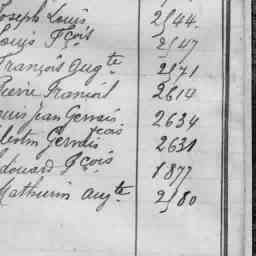 Joseph Louis 2544
Louis Fçois 2547
François Augte 2571
Pierre François 2614
Louis Jean Gervais 2634
Gervais fçois 2631
Edouard Fçois 1877
Mathurin Augte 2580